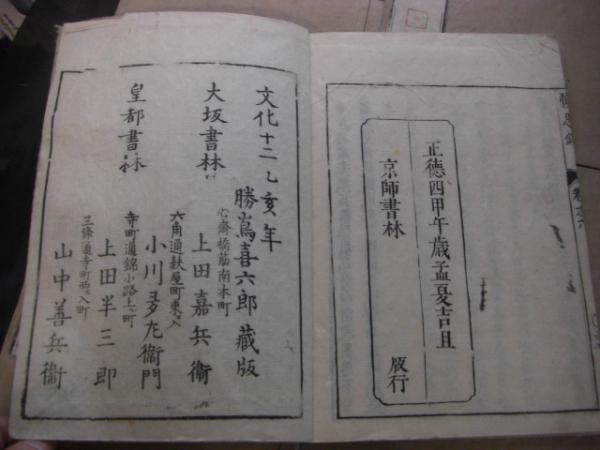 慎思錄 卷之六
正德四甲午歳孟夏吉旦
京師書林
版行
文化十二乙亥年
勝嶌喜六郎藏版
大坂書林
心齋橋筋南本町
上田嘉兵衞
皇都書林
六角通麩屋町東入
小川多左衞門
寺町通錦小路上ル町
上田半三郎
三條通寺町西ヘ入町
山中善兵衞